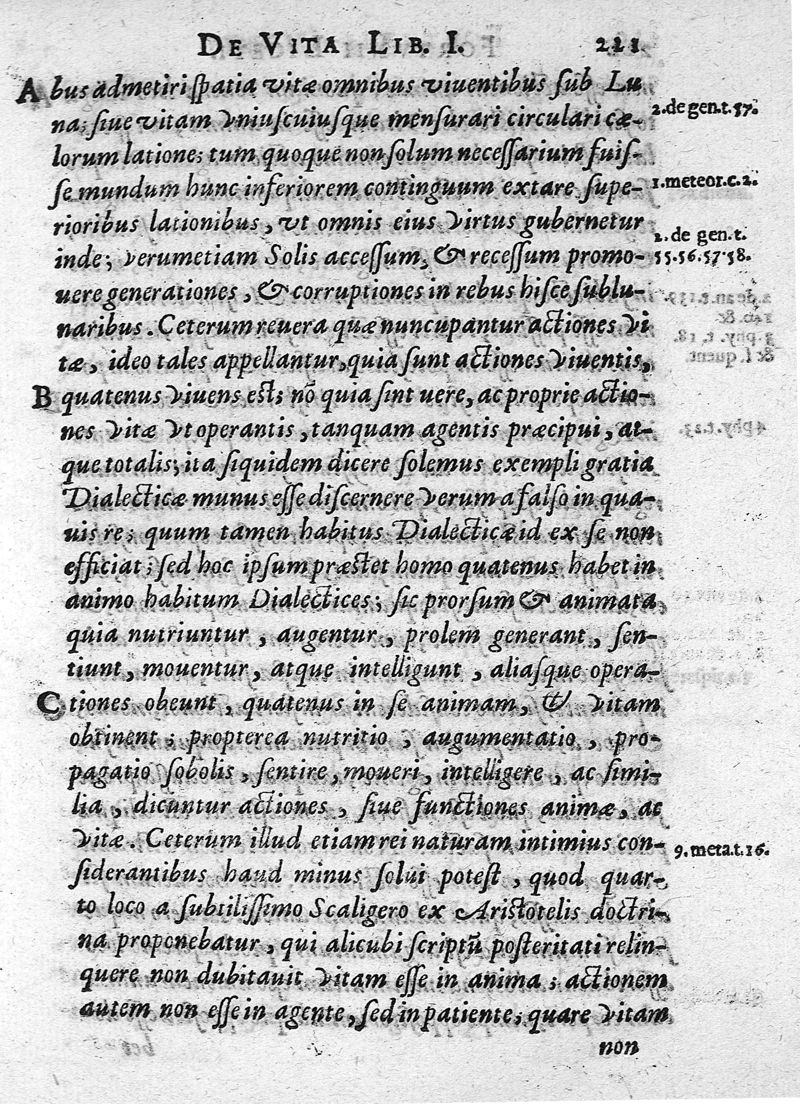 DE VITA LIB. I. 221
A bus admetiri spatia vitæ omnibus viuentibus sub Lu
na; siue vitam vniuscuiusque mensurari circulari cæ-
2. de gen. t. 57.
lorum latione; tum quoque non solum necessarium fuis-
se mundum hunc inferiorem continguum extare supe-
1. meteor. c. 2.
rioribus lationibus, vt omnis eius virtus gubernetur
inde; verumetiam Solis accessum, & recessum promo-
2. de gen. t.
55. 56. 57. 58.
uere generationes, & corruptiones in rebus hisce sublu-
naribus. Ceterum reuera quæ nuncupantur actiones vi
tæ, ideo tales appellantur, quia sunt actiones viuentis,
B quatenus viuens est; nō quia sint uere, ac proprie actio-
nes vitæ vt operantis, tanquam agentis præcipui, at-
que totalis; ita siquidem dicere solemus exempli gratia
Dialecticæ munus esse discernere verum a falso in qua-
uis re; quum tamen habitus Dialecticæ id ex se non
efficiat; sed hoc ipsum præstet homo quatenus habet in
animo habitum Dialectices; sic prorsum & animata
quia nutriuntur, augentur, prolem generant, sen-
tiunt, mouentur, atque intelligunt, aliasque opera-
C tiones obeunt, quatenus in se animam, & vitam
obtinent; propterea nutritio, augumentatio, pro-
pagatio sobolis, sentire, moueri, intelligere, ac simi-
lia, dicuntur actiones, siue functiones animæ, ac
vitæ. Ceterum illud etiam rei naturam intimius con-
9. meta. t. 16.
siderantibus haud minus solui potest, quod quar-
to loco a subtilissimo Scaligero ex Aristotelis doctri-
na proponebatur, qui alicubi scriptū posteritati relin-
quere non dubitauit vitam esse in anima; actionem
autem non esse in agente, sed in patiente; quare vitam
non